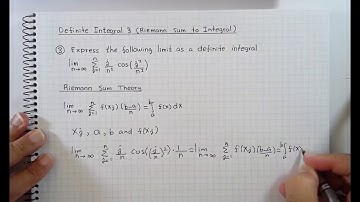 Definite Integral 3 (Riemann Sum to Integral)
③ Express the following limit as a definite integral
lim n→∞ ∑ j=1 n j/n² cos(j²/n²)
Riemann Sum Theory
lim n→∞ ∑ j=1 n f(xj)(b-a/n) = ∫ a b f(x) dx
xj, a, b and f(xj)
lim n→∞ ∑ j=1 n j/n cos((j/n)²) · 1/n = lim n→∞ ∑ j=1 n f(xj)(b-a/n) = ∫ a b f(x)